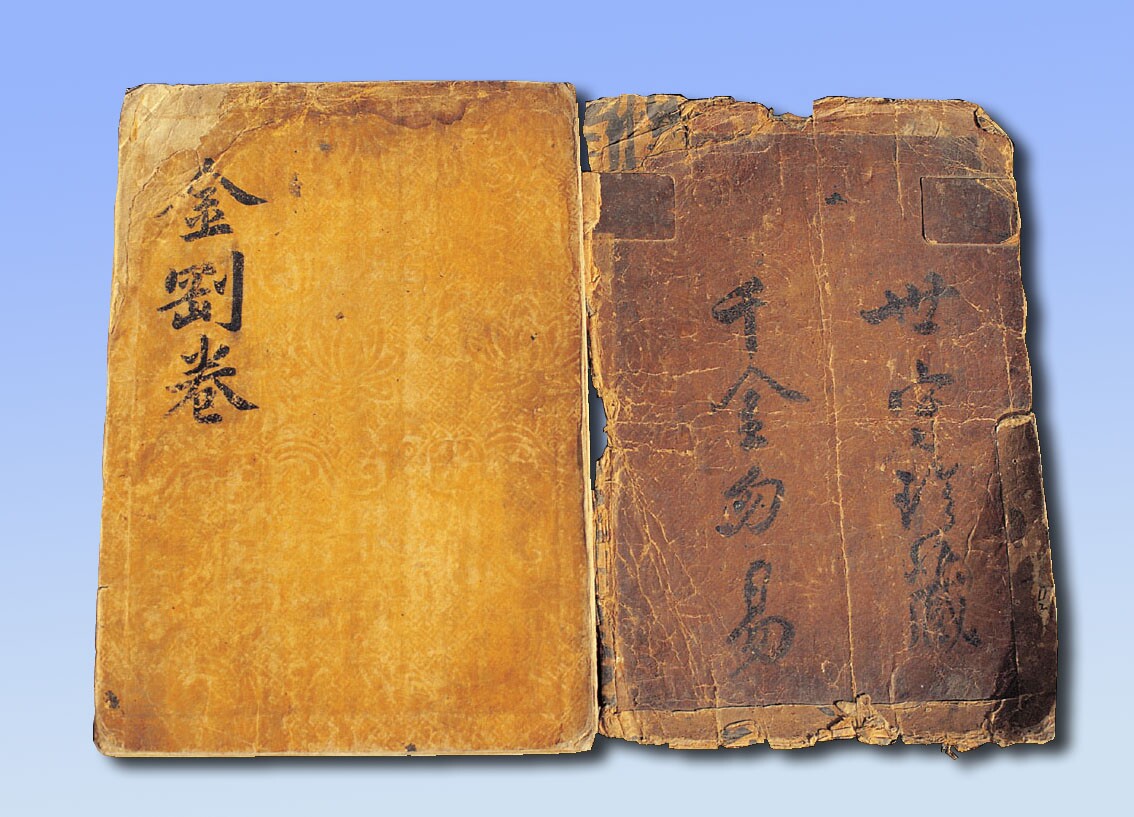 金剛卷
世守珍藏
千金勿易